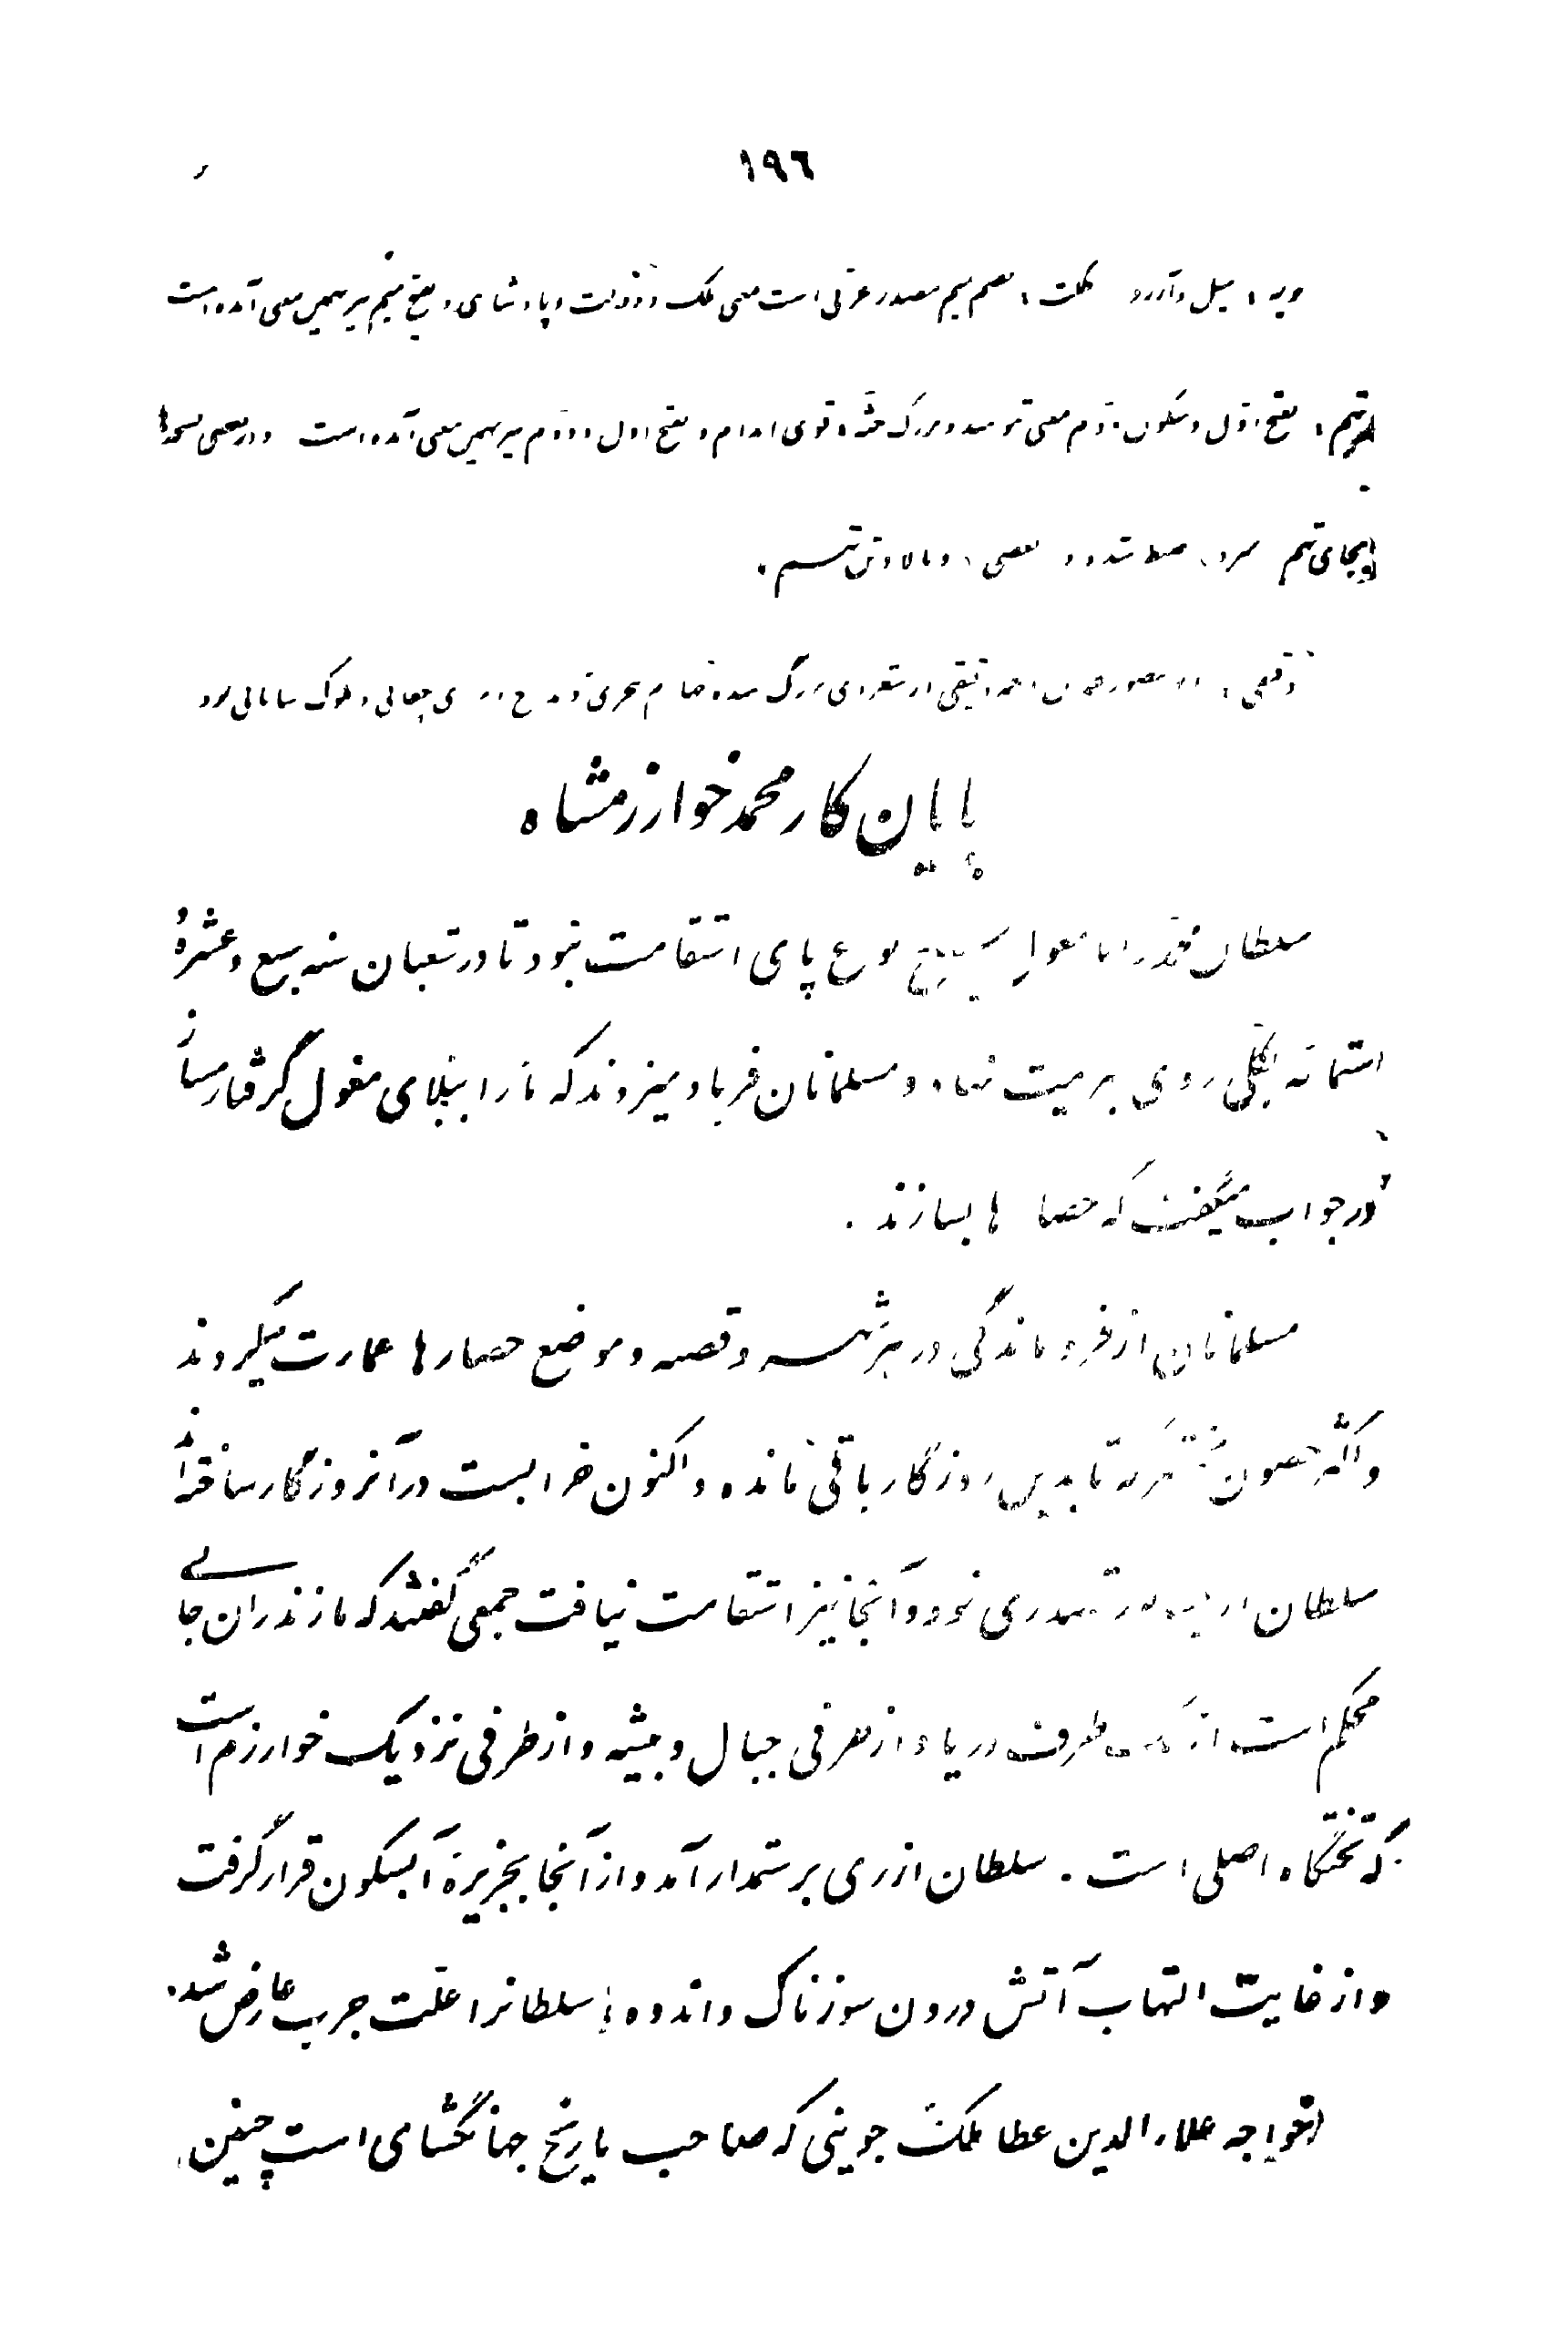 ١٩٦
ویه ، میل و آرزو ملکت ، بضم میم مصدر عربی است بمعنی ملک و دولت و پادشاهی و بفتح میم نیز بهمین معنی آمده است
تهم ، بفتح اول و سکون دوم بمعنی تنومند و بزرگ جثه و قوی اندام و بفتح اول و دوم نیز بهمین معنی آمده است و در بعضی نسخه‌ها
بجای تهم ضبط شده و در بعضی ، و بالا و تن
دقیقی ، ابو منصور محمد بن احمد دقیقی از شعرای بزرگ سده چهارم هجری و مداح امرای چغانی و ملوک سامانی بود
پایان کار محمد خوارزمشاه
سلطان محمد را با مغول بهیچ نوع پای استقامت نبود تا در شعبان سنه سبع و عشرهٔ
ستمائه بکلی روی بهزیمت نهاد و مسلمانان فریاد میزدند که ما را ببلای مغول گرفتار مساز
در جواب میگفت که حصارها بسازند .
مسلمانان از فرو ماندگی در هر شهر و قصبه و موضع حصارها عمارت میکردند
و اکثر حصون که تا بدین روزگار باقی مانده و اکنون خرابست در آنروزگار ساخته‌اند
سلطان از نیشابور قصد ری نمود و آنجا نیز استقامت نیافت جمعی گفتند که مازندران جائی
محکم است از یک طرف دریا و از طرفی جبال و بیشه و از طرفی نزدیک خوارزم است
که تختگاه اصلی است . سلطان از ری برستمدار آمد و از آنجا بجزیرهٔ آبسکون قرار گرفت
و از غایت التهاب آتش درون سوزناک و اندوه سلطانرا علت جرب عارض شد .
خواجه علاء الدین عطا ملک جوینی که صاحب تاریخ جهانگشای است چنین